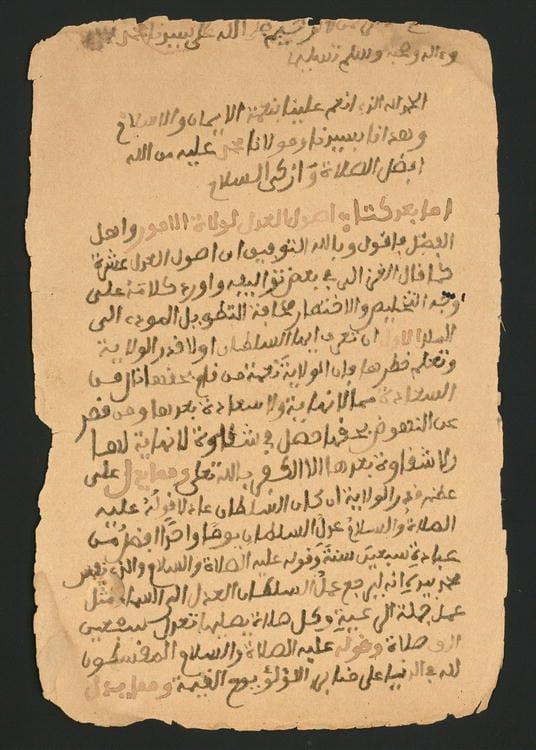 الرحيم صلى الله على سيدنا محمد
وءاله وصحبه وسلم تسليما
الحمد لله الذي انعم علينا بنعمة الايمان والاسلام
وهدانا بسيدنا ومولانا محمد عليه من الله
افضل الصلاة وازكى السلام
اما بعد كتاب اصول العدل لولاة الامور واهل
الفضل فاقول وبالله التوفيق ان اصول العدل عشرة
كما قال الغزالي في بعض تواليفه واورد كلامه على
وجه التخليص والاختصار مخافة التطويل المودي الى
الملل الاول ان تعرف ايها السلطان اولا قدر الولاية
وتعلم خطرها فان الولاية نعمة من قام بحقها نال من
السعادة ما لا نهاية له ولا سعادة بعدها ومن قصر
عن النهوض بحقها حصل في شقاوة لا نهاية لها
ولا شقاوة بعدها الا الكفر بالله تعلى ومما يدل على
عظم قدر الولاية ان كان السلطان عادلا قوله عليه
الصلاة والسلام عدل السلطان يوما واحدا افضل من
عبادة سبعين سنة وقوله عليه الصلاة والسلام والذي نفس
محمد بيده انه ليرفع عمل السلطان العدل الى السماء مثل
عمل جملة الرعية وكل صلاة يصليها تعدل سبعين
الف صلاة وقوله عليه الصلاة والسلام المقسطون
لله في الدنيا على منابر اللؤلؤ يوم القيمة ومما يدل